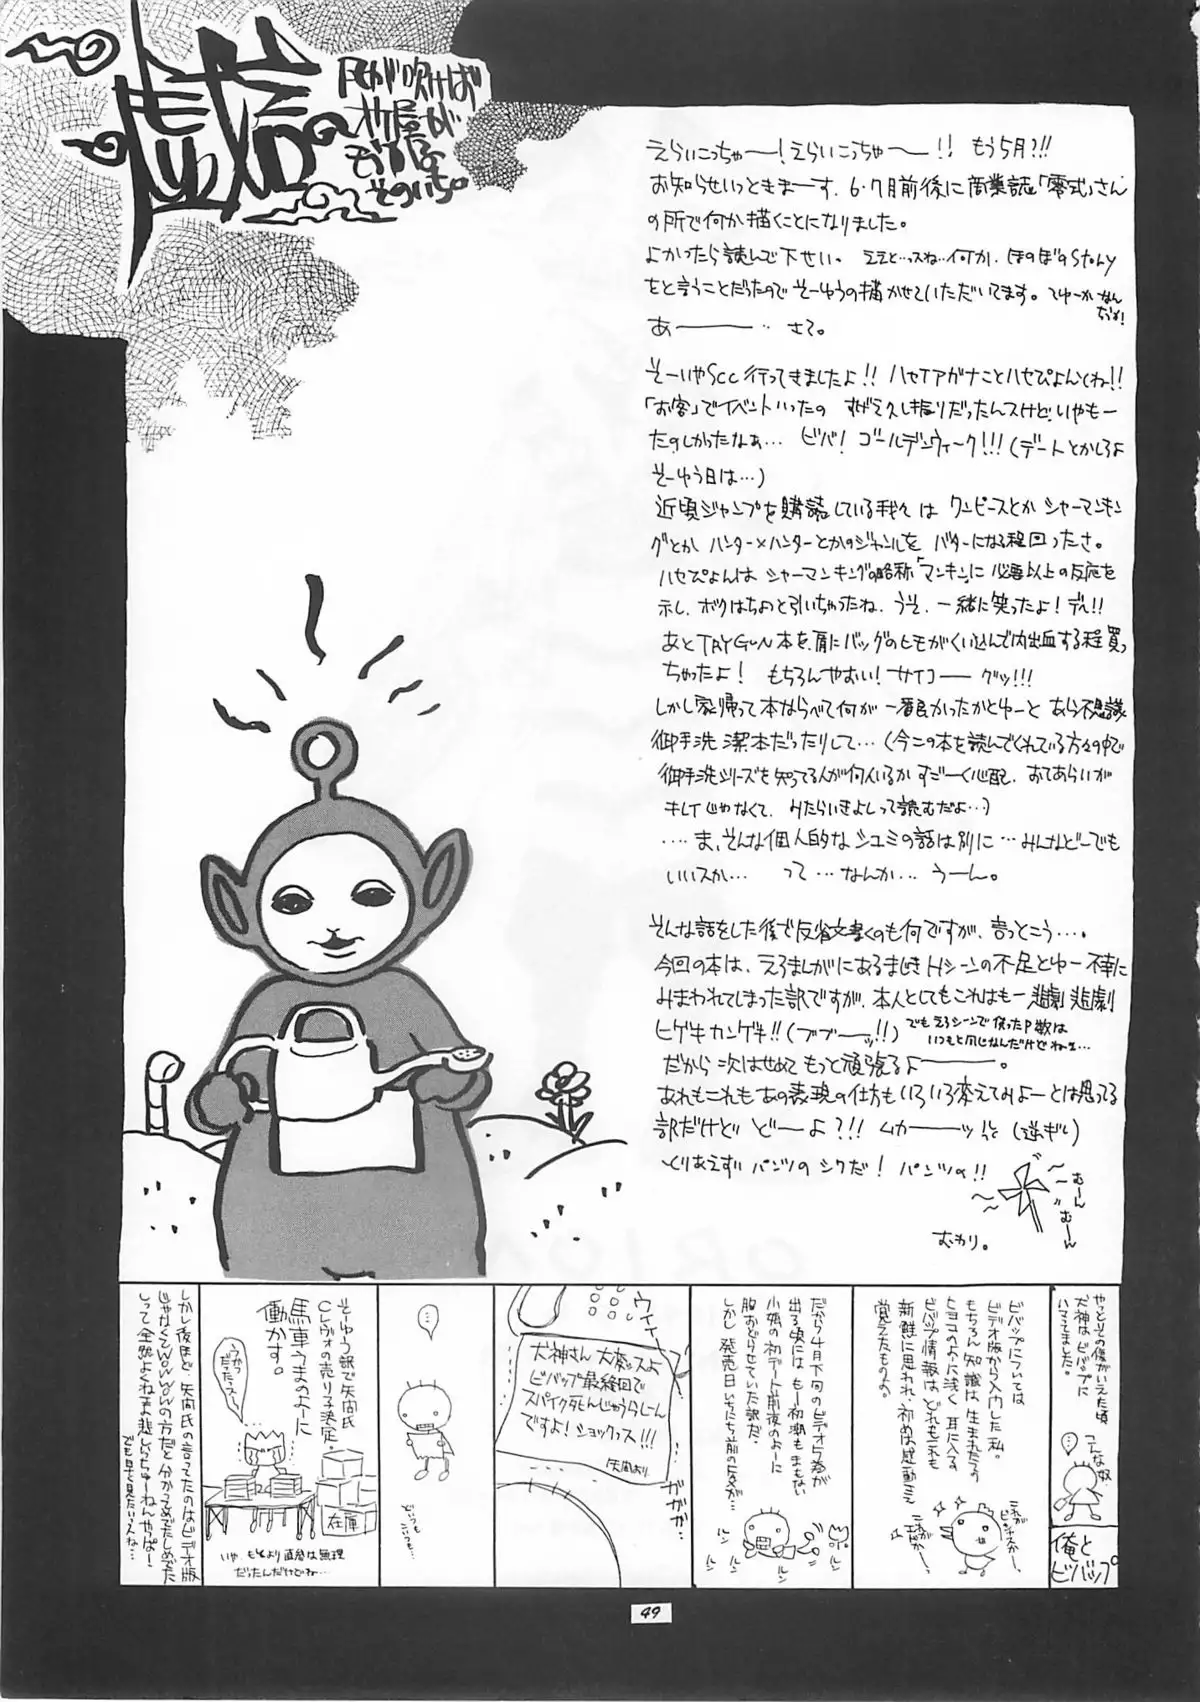 戯
風が吹けば
オケ屋が
もうかる
そのいち。
えらいこっちゃ――!えらいこっちゃ――!! もう5月?!!
お知らせいっときまーす。6・7月前後に商業誌「零式」さん
の所で何か描くことになりました。
よかったら読んで下せい。 ええと…っスね…何か、ほのぼのStory
をと言うことだったので そーゆうの描かせていただいてます。てゆーか なん
ちゅうか!
あ―――‥ さて。
そーいやScc行ってきましたよ!! ハセイアガナことハセぴょんとね!!
「お客」でイベントいったの すげえ久し振りだったんスけど、いやもー
たのしかったなぁ… ビバ! ゴールデンウィーク!!!(デートとかしろよ
そーゆう日は…)
近頃ジャンプを購読している我々は ワンピースとか シャーマンキン
グとか ハンター×ハンターとかのジャンルを バターになる程回ったさ。
ハセぴょんは シャーマンキングの略称「マンキン」に 必要以上の反応を
示し、ボクはちょっと引いちゃったね。うそ、一緒に笑ったよ!デへ!!
あと TRYGUN 本を、肩にバッグのヒモがくい込んで内出血する程買っ
ちゃったよ! もちろんやおい! サイコ―― グッ!!!
しかし家帰って本ならべて何が 一番良かったかとゆーと あら不思議
御手洗 潔本だったりして…(今この本を読んでくれている方々の中で
御手洗シリーズを知ってる人が何人いるか すごーく心配、おてあらいが
キレイじゃなくて、みたらいきよしって読むだよ…)
‥‥ま、そんな個人的な シュミの話は別に … みんなどーでも
いいスか… って … なんか… うーん。
そんな話をした後で反省文書くのも何ですが、言っとこう…。
今回の本は、えろまんがにあるまじき Hシーンの不足とゆー 不幸に
みまわれてしまった訳ですが、本人としてもこれはもー 悲劇 悲劇
ヒゲキ カンゲキ!!(ブブ―ッ!!)
でもえろシーンで使ったP数は
いつもと同じなんだけどねぇ…
だから 次はせめて もっと頑張るよ―――。
あれもこれも あの表現の仕方も いろいろ変えてみよーとは思ってる
訳だけど ど――よ?!! ムカ――ッ!! (逆ギレ)
とりあえず パンツの シワだ! パンツの!!
むーん
むーん
むわり。
俺と
ビバップ
やっとその傷がいえた頃
犬神はビバップに
ハマってました。
こんな奴
…
ビバップについては
ビデオ版から入門した私。
もちろん知識は生まれたての
ヒヨコのように浅く 耳に入る
ビバップ情報は、どれもこれも
新鮮に思われ、初めは感動さえ
覚えたものの。
だから4月下旬のビデオ5巻が
出る頃には もー初潮もまもない
小娘の初デート前夜のよーに
胸おどらせていた訳だ。
しかし 発売日いちにち前の夜が…
ルン
ルン
ルン
ルン
ウィィ
犬神さん 大変ッスよ
ビバップ最終回で
スパイクタヒんじゃうらしーん
ですよ! ショックッス!!!
矢間より
ガガガガ
…
そーゆう訳で矢間氏
Cレヴォの売り子決定。
馬車うまのように
働かす。
在庫
いや、もとより 直参は無理
だったんだけどね…
しかし後ほど、矢間氏の言ってたのはビデオ版
じゃなくてWOWOWの方だと分かってめでたしめでた
しって全然よくねぇよ越しっちゅーねんやっぱー、
でも早く見たいっスね…
49